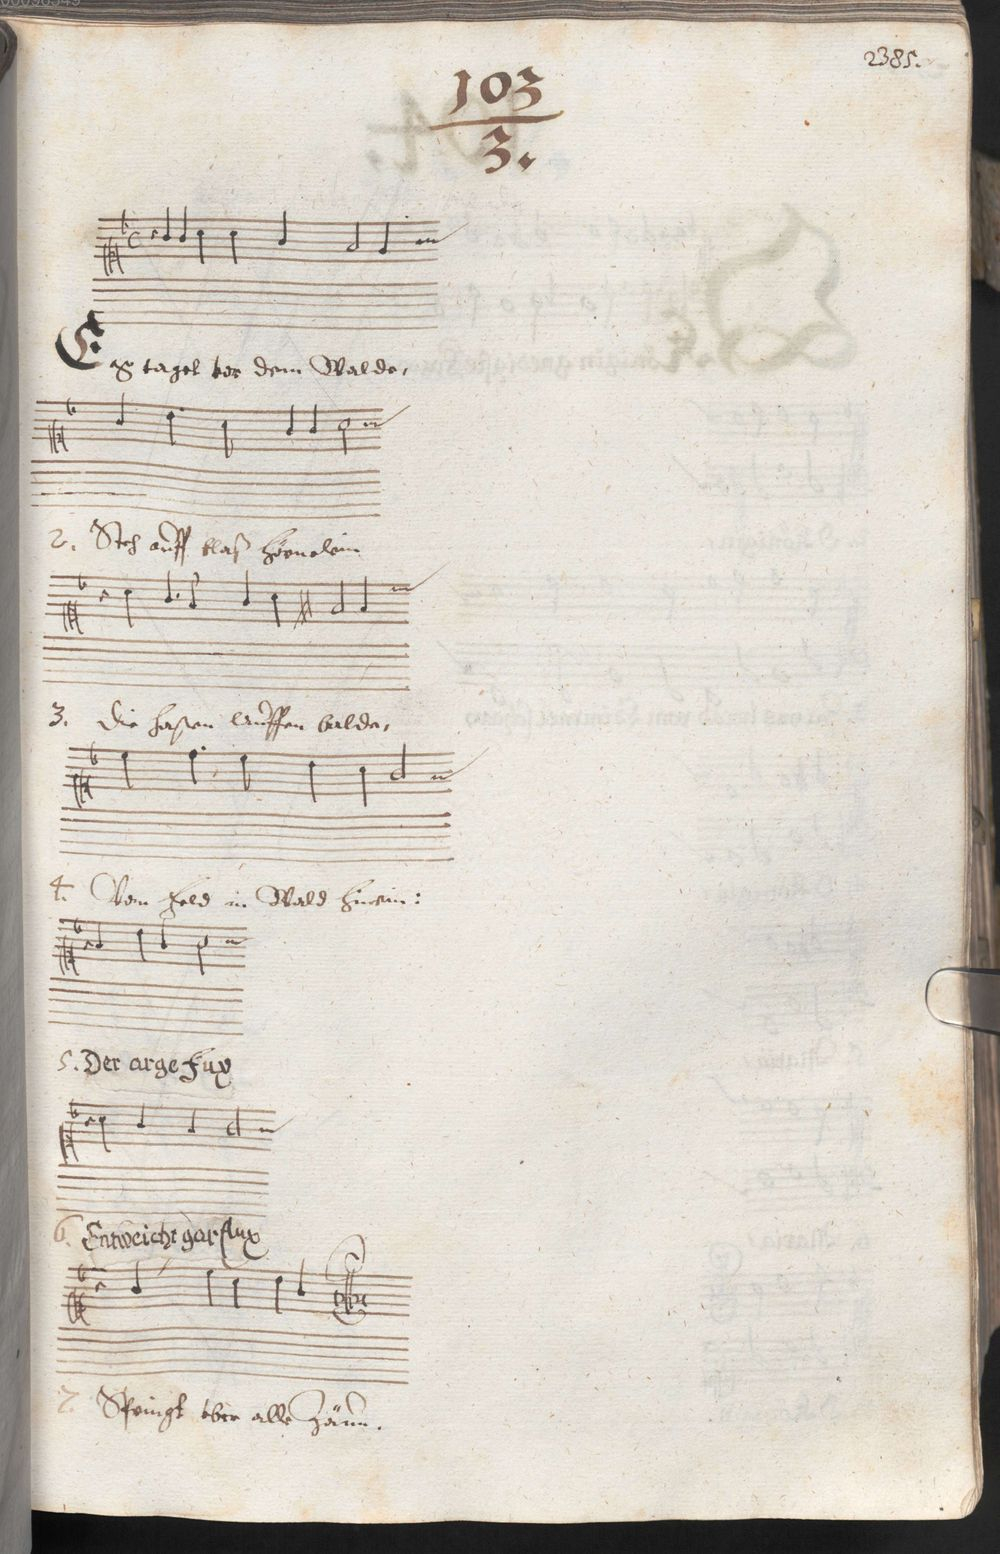 2385.
103
3.
Eß taget vor dem Walde,
2. Steh auff blaß hörnelein
3. Die hasen lauffen balde,
4. Vom Feld in Wald hinein:
5. Der arge Fux
6. Entweicht gar flux
7. Springt vber alle Zäun.